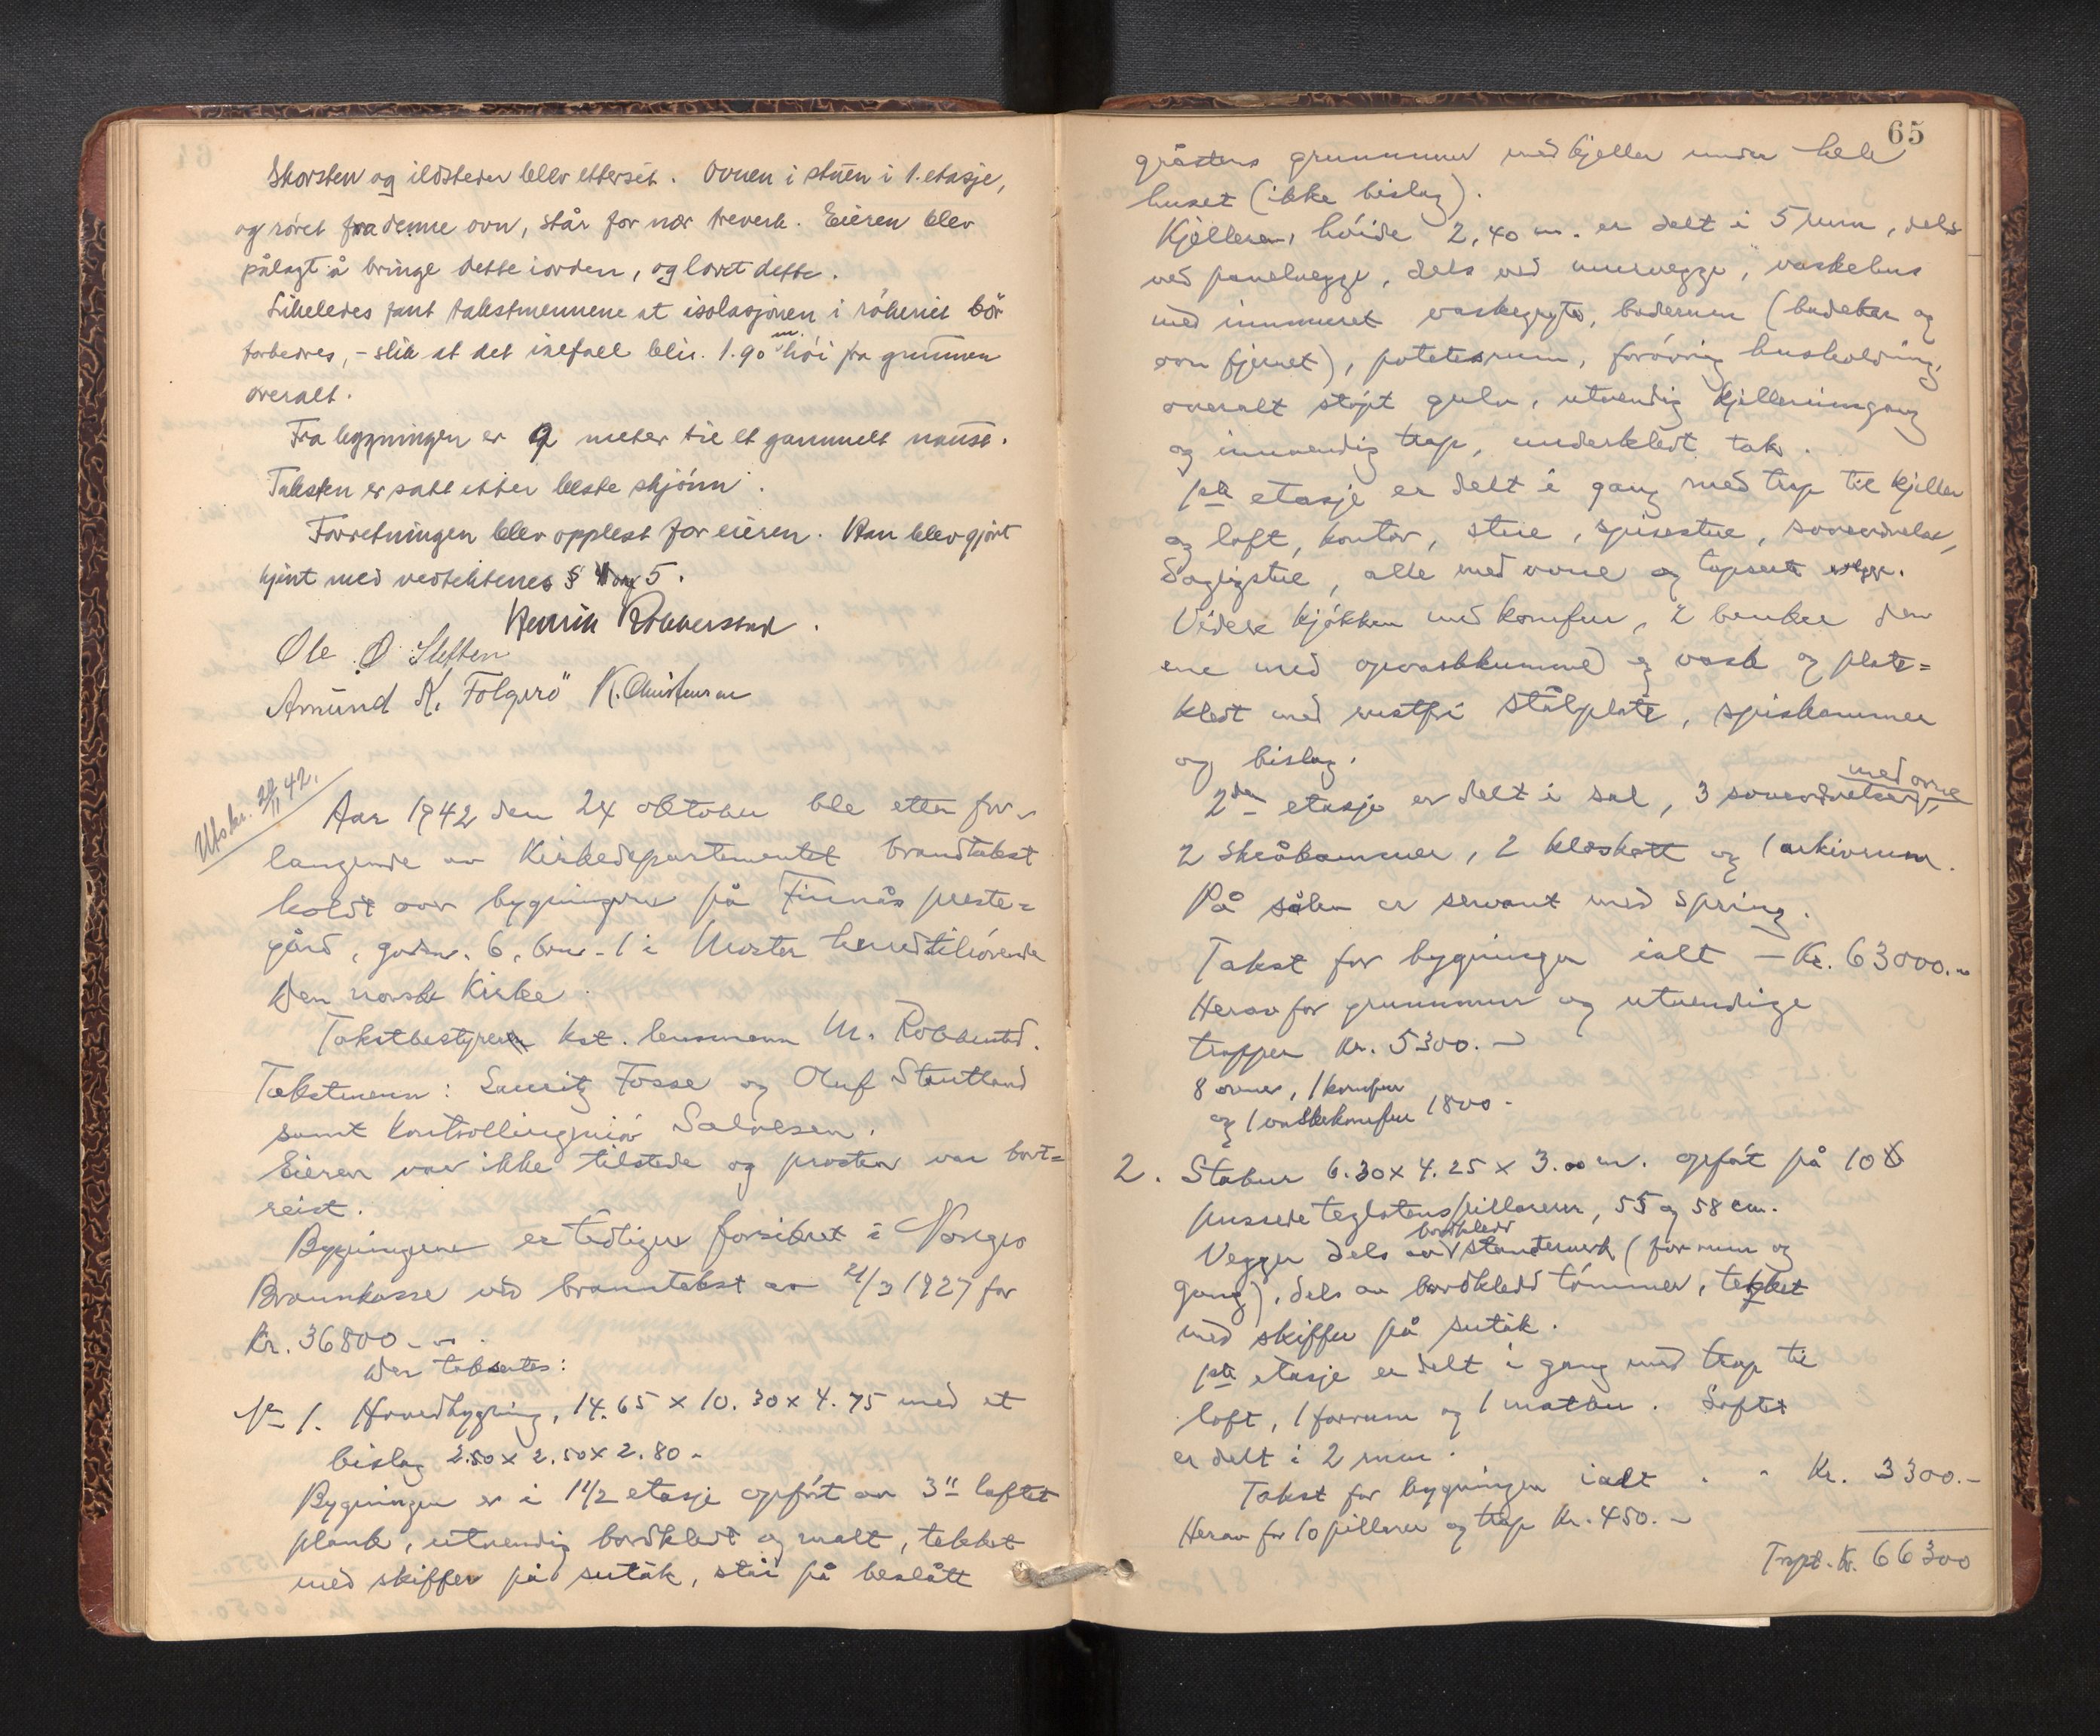 Skorsten og ildsteder blev etterset. Ovnen i stuen i 1. etasje,
og røret fra denne ovn, står for nær treverk. Eieren blev
pålagt å bringe dette iorden, og lovet dette.
Likeledes fant takstmennene at isolasjonen i røkeriet bør
forbedres, - slik at det ialfall blir 1.90 m. høi fra grunnen
overalt.
Fra bygningen er 9 meter til et gammelt naust.
Taksten er satt etter beste skjønn.
Forretningen blev opplest for eieren. Han blev gjort
kjent med vedtektenes § 4 og 5.
Henrik Robberstad.
Ole Ø Sletten
Amund K. Folgerø K. Christensen
Utskr. 20/11 42.
Aar 1942 den 24 oktober ble etter for-
langende av Kirkedepartementet brandtakst
holdt over bygningene på Finnås preste=
gård, gardsnr. 6, brnr. 1 i Moster herred tilhørende
Den norske Kirke.
Takstbestyrer kst. lensmann M. Robberstad.
Takstmenn: Lauritz Fosse og Oluf Stautland
samt kontrollingeniør Salvesen.
Eieren var ikke tilstede og prosten var bort=
reist.
Bygningene er tidligere forsikret i Norges
Brannkasse ved branntakst av 21/3 1927 for
Kr. 36800.-
Der takseres:
No 1. Hovedbygning, 14.65 x 10.30 x 4.75 med et
bislag 2.50 x 2.50 x 2.80 -
Bygningen er i 1 1/2 etasje opført av 3" laftet
plank, utvendig bordkledt og malt, tekket
med skiffer på sutak, står på beslått
65
gråstens grunnmur med kjeller under hele
huset (ikke bislag).
Kjelleren, høide 2,40 m. er delt i 5 rum, dels
ved panelvegge, dels ved murvegge, vaskehus
med innmuret vaskegryte, baderum (badekar og
ovn fjernet), potetesrum, forøvrig husholdning,
overalt støpt gulv, utvendig kjellerinngang
og innvendig trap, underkledt tak.
1ste etasje er delt i gang med trap til kjeller
og loft, kontor, stue, spisestue, soveværelse,
Dagligstue, alle med ovne og tapserte vegge.
Videre kjøkken med komfur, 2 benker den
ene med opvaskkumme og vask og plate=
kledt med rustfri stålplate, spiskammer
og bislag.
2den etasje er delt i sal, 3 soveværelser med ovne,
2 skråkammer, 2 kleskott og 1 arkivrum.
På salen er servant med spring.
Takst for bygningen ialt - Kr. 63000.-
Herav for grunnmur og utvendige
trapper Kr. 5300.-
8 ovner, 1 komfur
og 1 vaskekomfur 1800.-
2. Stabur 6.30 x 4.25 x 3.00 m. opført på 10
pussede teglstenspillarer, 55 og 58 cm.
Vegger dels av bordkledd standerverk (forrum og
gang), dels av bordkledd tømmer, tekket
med skiffer på sutak.
1ste etasje er delt i gang med trap til
loft, 1 forrum og 1 matbu. Loftet
er delt i 2 rum.
Takst for bygningen ialt . - Kr. 3300.-
Herav for 10 pillarer og trap Kr. 450.-
Trspt. Kr. 66300